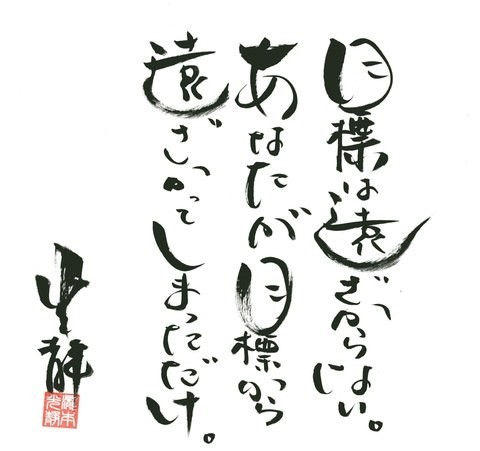 目標は遠ざからない。
あなたが目標から
遠ざかってしまっただけ。